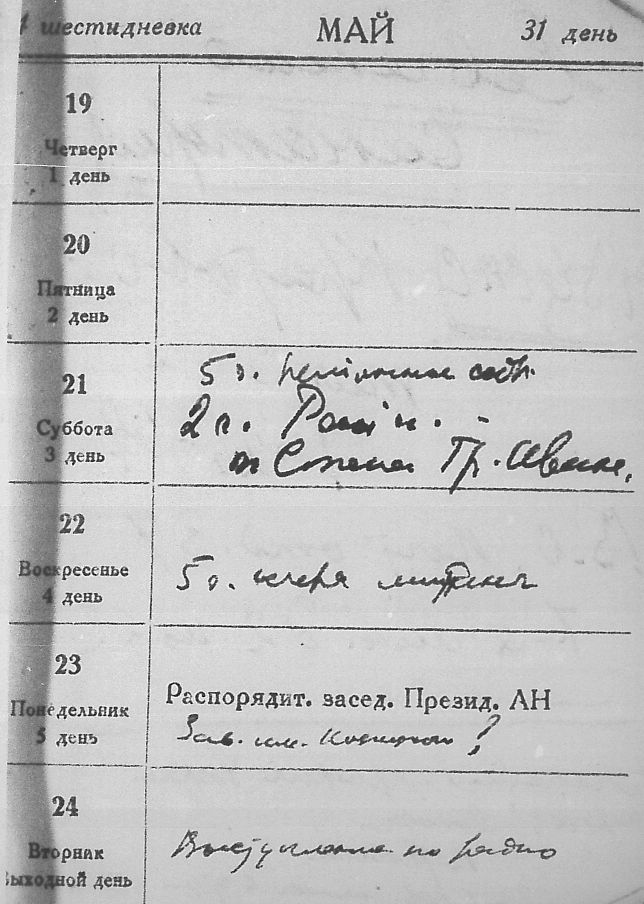 шестидневка МАЙ 31 день
19
Четверг
1 день
20
Пятница
2 день
21
Суббота
3 день
5
2
22
Воскресенье
4 день
5 вечера
23
Понедельник
5 день
Распорядит. засед. Презид. АН
Зав. им. ?
24
Вторник
Выходной день
Выступление по радио